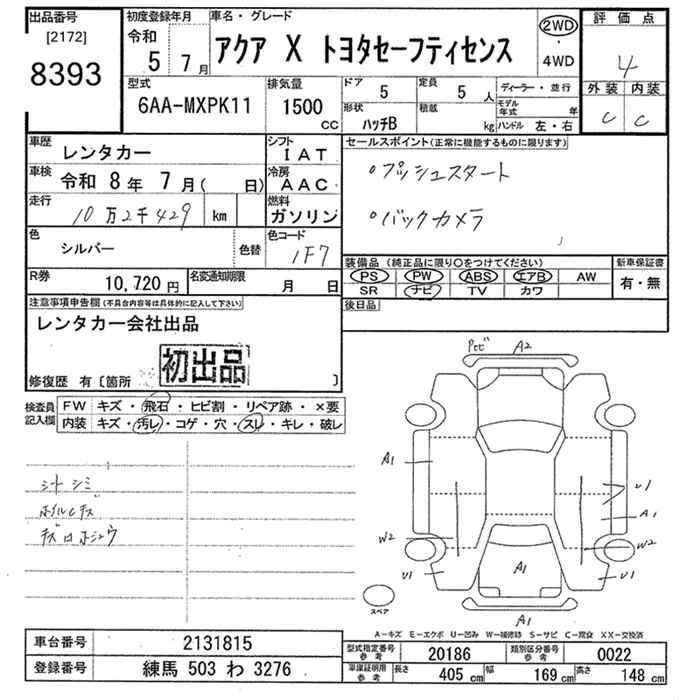 出品番号
[2172]
8393
初度登録年月
令和
5 7月
車名・グレード
アクア X トヨタセーフティセンス
2WD
・
4WD
評価点
4
外装 内装
C C
型式
6AA-MXPK11
排気量
1500
CC
ドア
5
定員
5 人
ディーラー・並行
モデル年式 年
形状
ハッチB
積載
kg
ハンドル 左・右
車歴
レンタカー
シフト
IAT
車検
令和 8年 7月( 日)
冷房
AAC
走行
10万2千429 km
燃料
ガソリン
色
シルバー
色替
色コード
1F7
R券
10,720円
名変通知期限
月 日
セールスポイント(正常に機能するものに限ります)
・プッシュスタート
・バックカメラ
装備品(純正品に限り○をつけてください)
PS PW ABS エアB AW
SR ナビ TV カワ
新車保証書
有・無
後日品
注意事項申告欄(不具合内容等は具体的に記入して下さい)
レンタカー会社出品
初出品
修復歴 有〔箇所 〕
検査員記入欄
FW キズ・飛石・ヒビ割・リペア跡・×要
内装 キズ・汚レ・コゲ・穴・スレ・キレ・破レ
シートシミ
A2
A1
U1
A1
W2
W2
U1
A1
U1
A1
スペア
A-キズ E-エクボ U-凹み W-補修跡 S-サビ C-腐食 XX-交換済
車台番号
2131815
登録番号
練馬 503 わ 3276
型式指定番号
参考
20186
類別区分番号
参考
0022
車庫証明用
参考
長さ
405 cm
幅
169 cm
高さ
148 cm